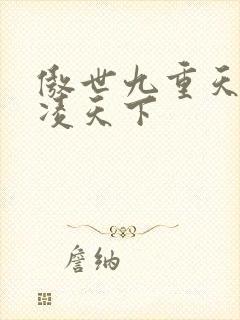 傲世九重天
凌天下
詹纳